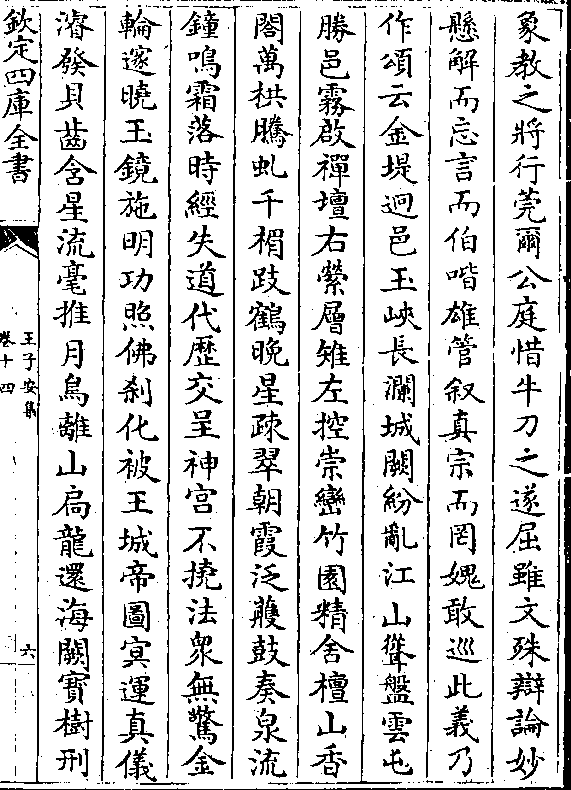 象教之將行莞爾公庭惜牛刀之遂屈雖文殊辯論妙
懸解而忘言而伯喈雄管叙真宗而罔媿敢巡此義乃
作頌云金堤迥邑玉峽長瀾城闕紛亂江山聳盤雲屯
勝邑霧啟禪壇右縈層雉左控崇巒竹園精舍檀山香
閣萬栱騰虬千楣跂鶴晚星疎翠朝霞泛雘鼓奏泉流
鐘鳴霜落時經失道代歷交呈神宮不撓法衆無驚金
輪邃曉玉鏡施明功照佛刹化被王城帝圖冥運真儀
濬發貝齒含星流毫推月鳥離山扃龍還海闕寶樹刑
欽定四庫全書
王子安集
卷十四
六